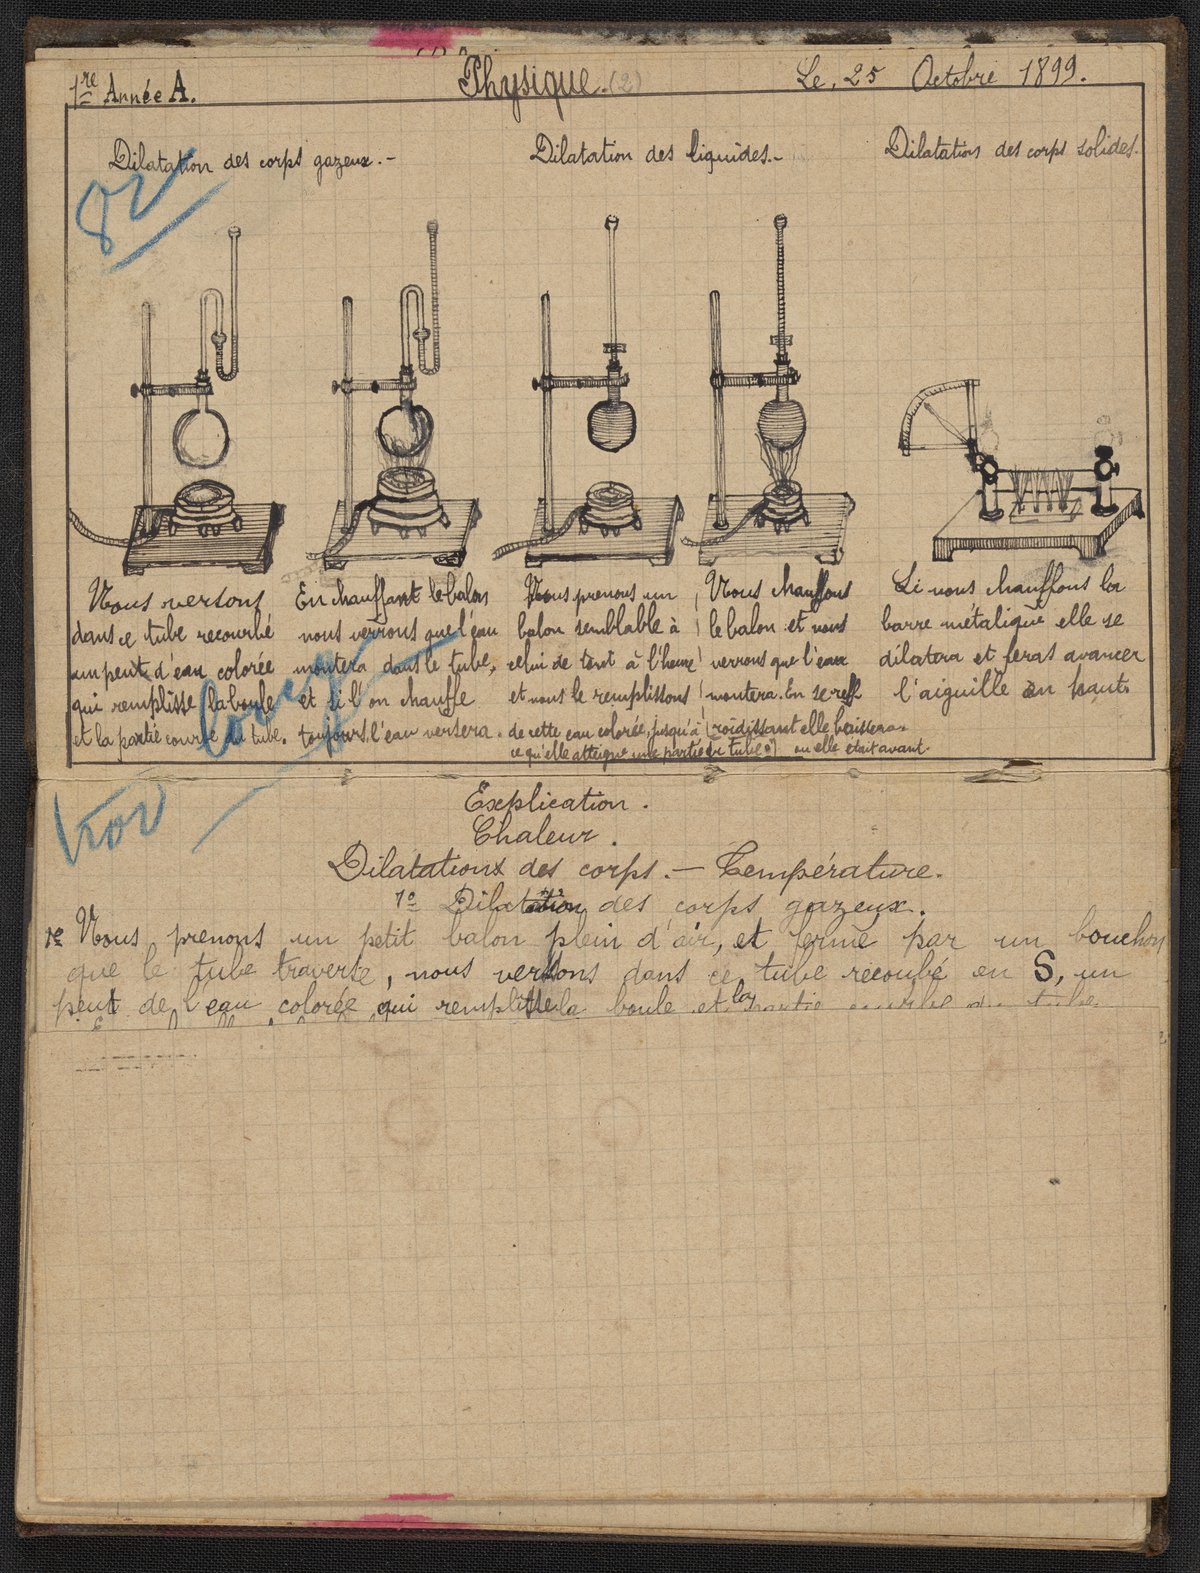 1re Année A.
Physique.(2)
Le, 25 Octobre 1899.
Dilatation des corps gazeux.-
Dilatation des liquides.-
Dilatation des corps solides.
82
Nous versons
dans ce tube recourbé
un peut d'eau colorée
qui remplisse la boule
et la partie courbe du tube.
En chauffant le balon
nous verrons que l'eau
montera dans le tube,
et si l'on chauffe
toujours, l'eau versera.
Nous prenons un
balon semblable à
celui de tout à l'heure
et nous le remplissons
de cette eau colorée, jusqu'à
ce qu'elle atteigne une partie du tube.
Nous chauffons
le balon et nous
verrons que l'eau
montera. En se ref
roidissant elle baissera
ou elle était avant.
Si nous chauffons la
barre métalique elle se
dilatera et feras avancer
l'aiguille en haut.
Explication.
Chaleur.
Dilatations des corps.- Température.
1o Dilatation des corps gazeux.
1e Nous prenons un petit balon plein d'air, et fermé par un bouchon
que le tube traverse, nous versons dans ce tube recoubé en S, un
peut de l'eau colorée qui remplisse la boule et la partie courbe du tube